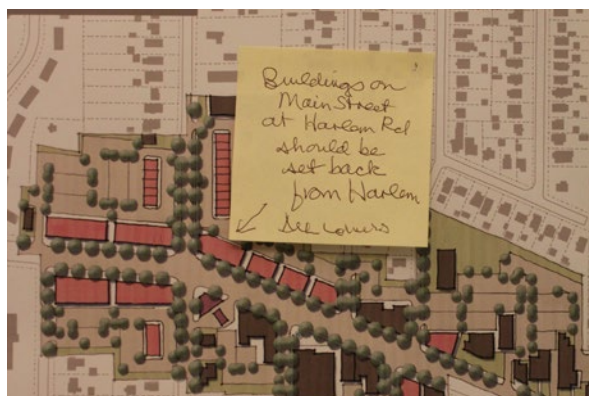 Buildings on
Main Street
at Harlem Rd
should be
set back
from Harlem